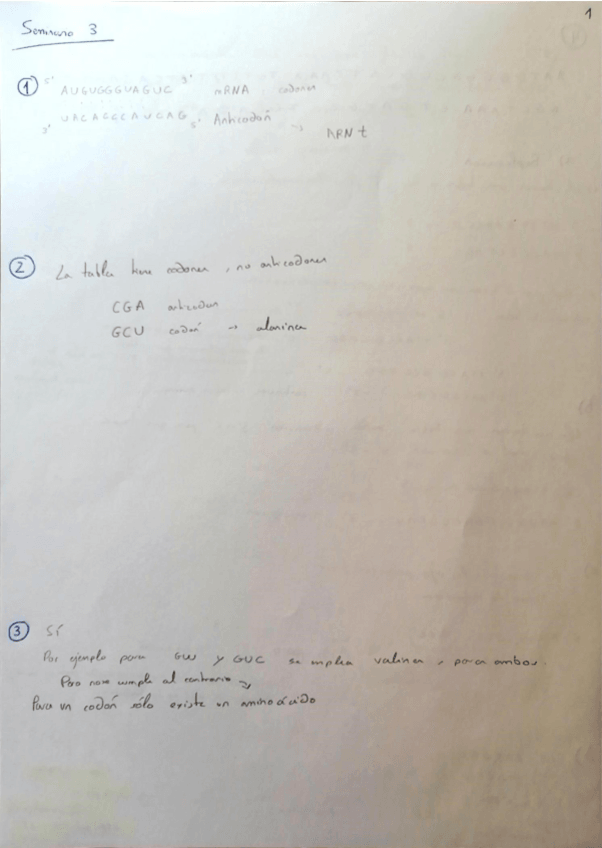 1
Seminario 3
① 5' AUGUGGGUAGUC 3' mRNA codones
3' UACACCCAUCAG 5' Anticodón → ARN t
② La tabla tiene codones, no anticodones
CGA anticodon
GCU codón → alanina
③ Sí
Por ejemplo para GUU y GUC se emplea valina, para ambos.
Pero no se cumple al contrario →
Para un codón sólo existe un aminoácido